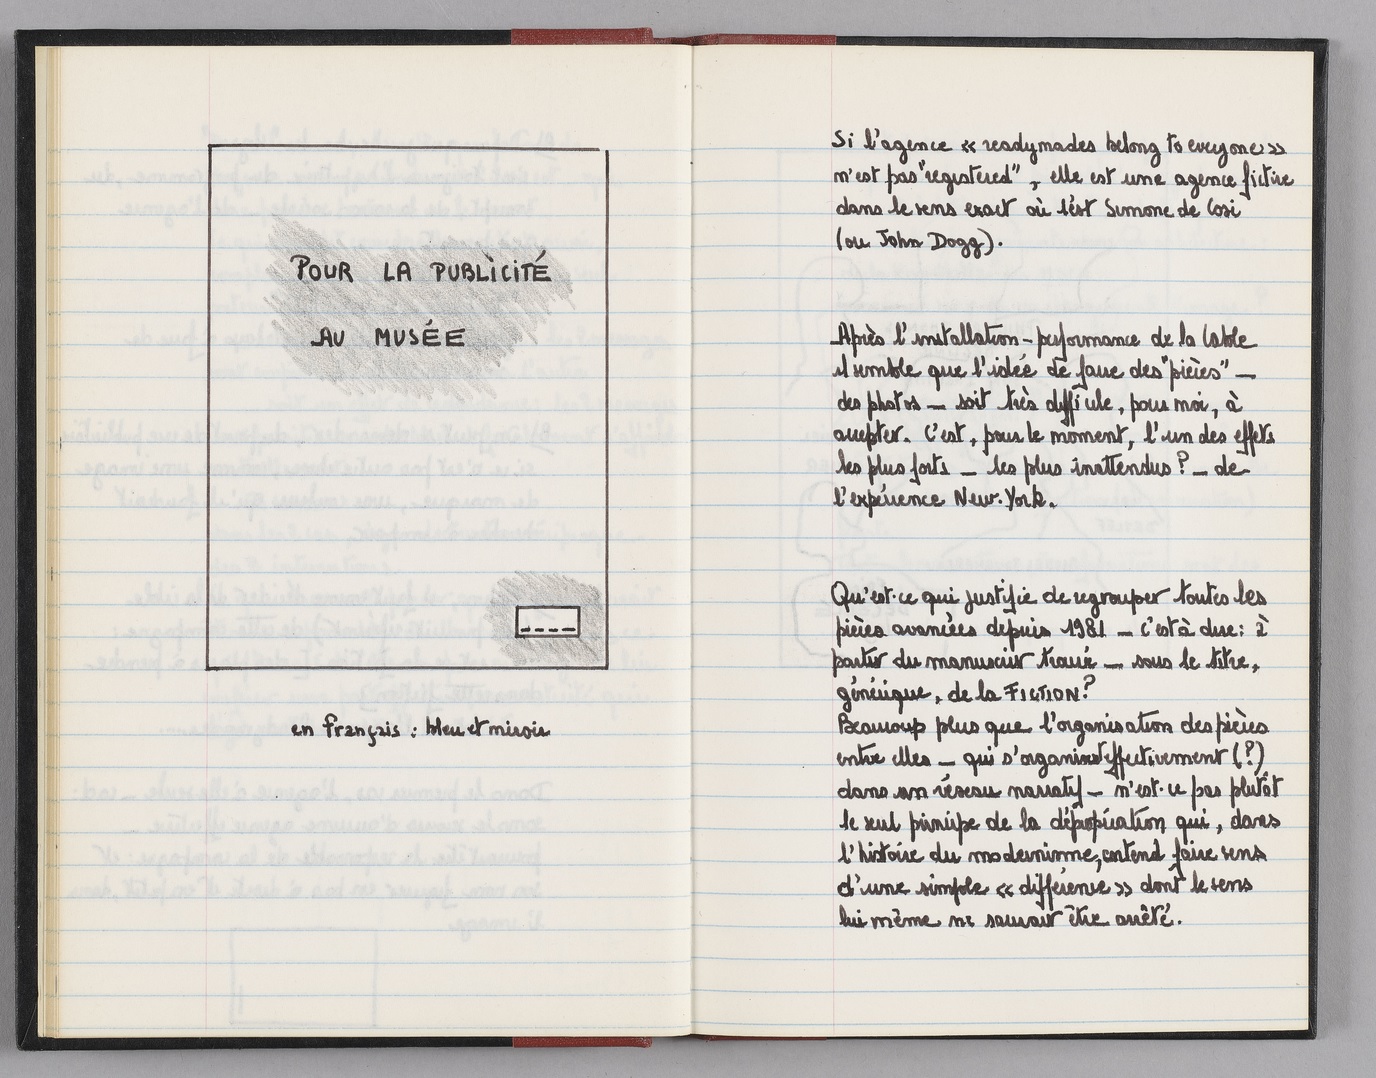 POUR LA PUBLICITÉ
AU MUSÉE
en français : bleu et miroir
Si l'agence « readymades belong to everyone »
n'est pas "registered", elle est une agence fictive
dans le sens exact où l'est Simone de Cosi
(ou John Dogg).
Après l'installation-performance de la table
il semble que l'idée de faire des "pièces" —
des photos — soit très difficile, pour moi, à
accepter. C'est, pour le moment, l'un des effets
les plus forts — les plus inattendus ? — de
l'expérience New-York.
Qu'est-ce qui justifie de regrouper toutes les
pièces avancées depuis 1981 — c'est à dire : à
partir du manuscrit trouvé — sous le titre,
générique, de la FICTION ?
Beaucoup plus que l'organisation des pièces
entre elles — qui s'organisent effectivement (?)
dans un réseau narratif — n'est-ce pas plutôt
le seul principe de la dépropriation qui, dans
l'histoire du modernisme, entend faire sens
d'une simple « différence » dont le sens
lui même ne saurait être arrêté.